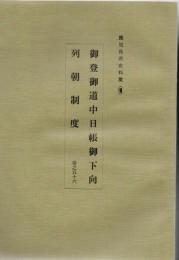 鹿児島県史料集
御登御道中日帳御下向
列朝制度 巻之五十六